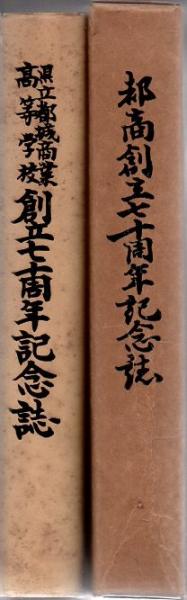 県立都城商業
高等学校
創立七十周年記念誌
都商創立七十周年記念誌